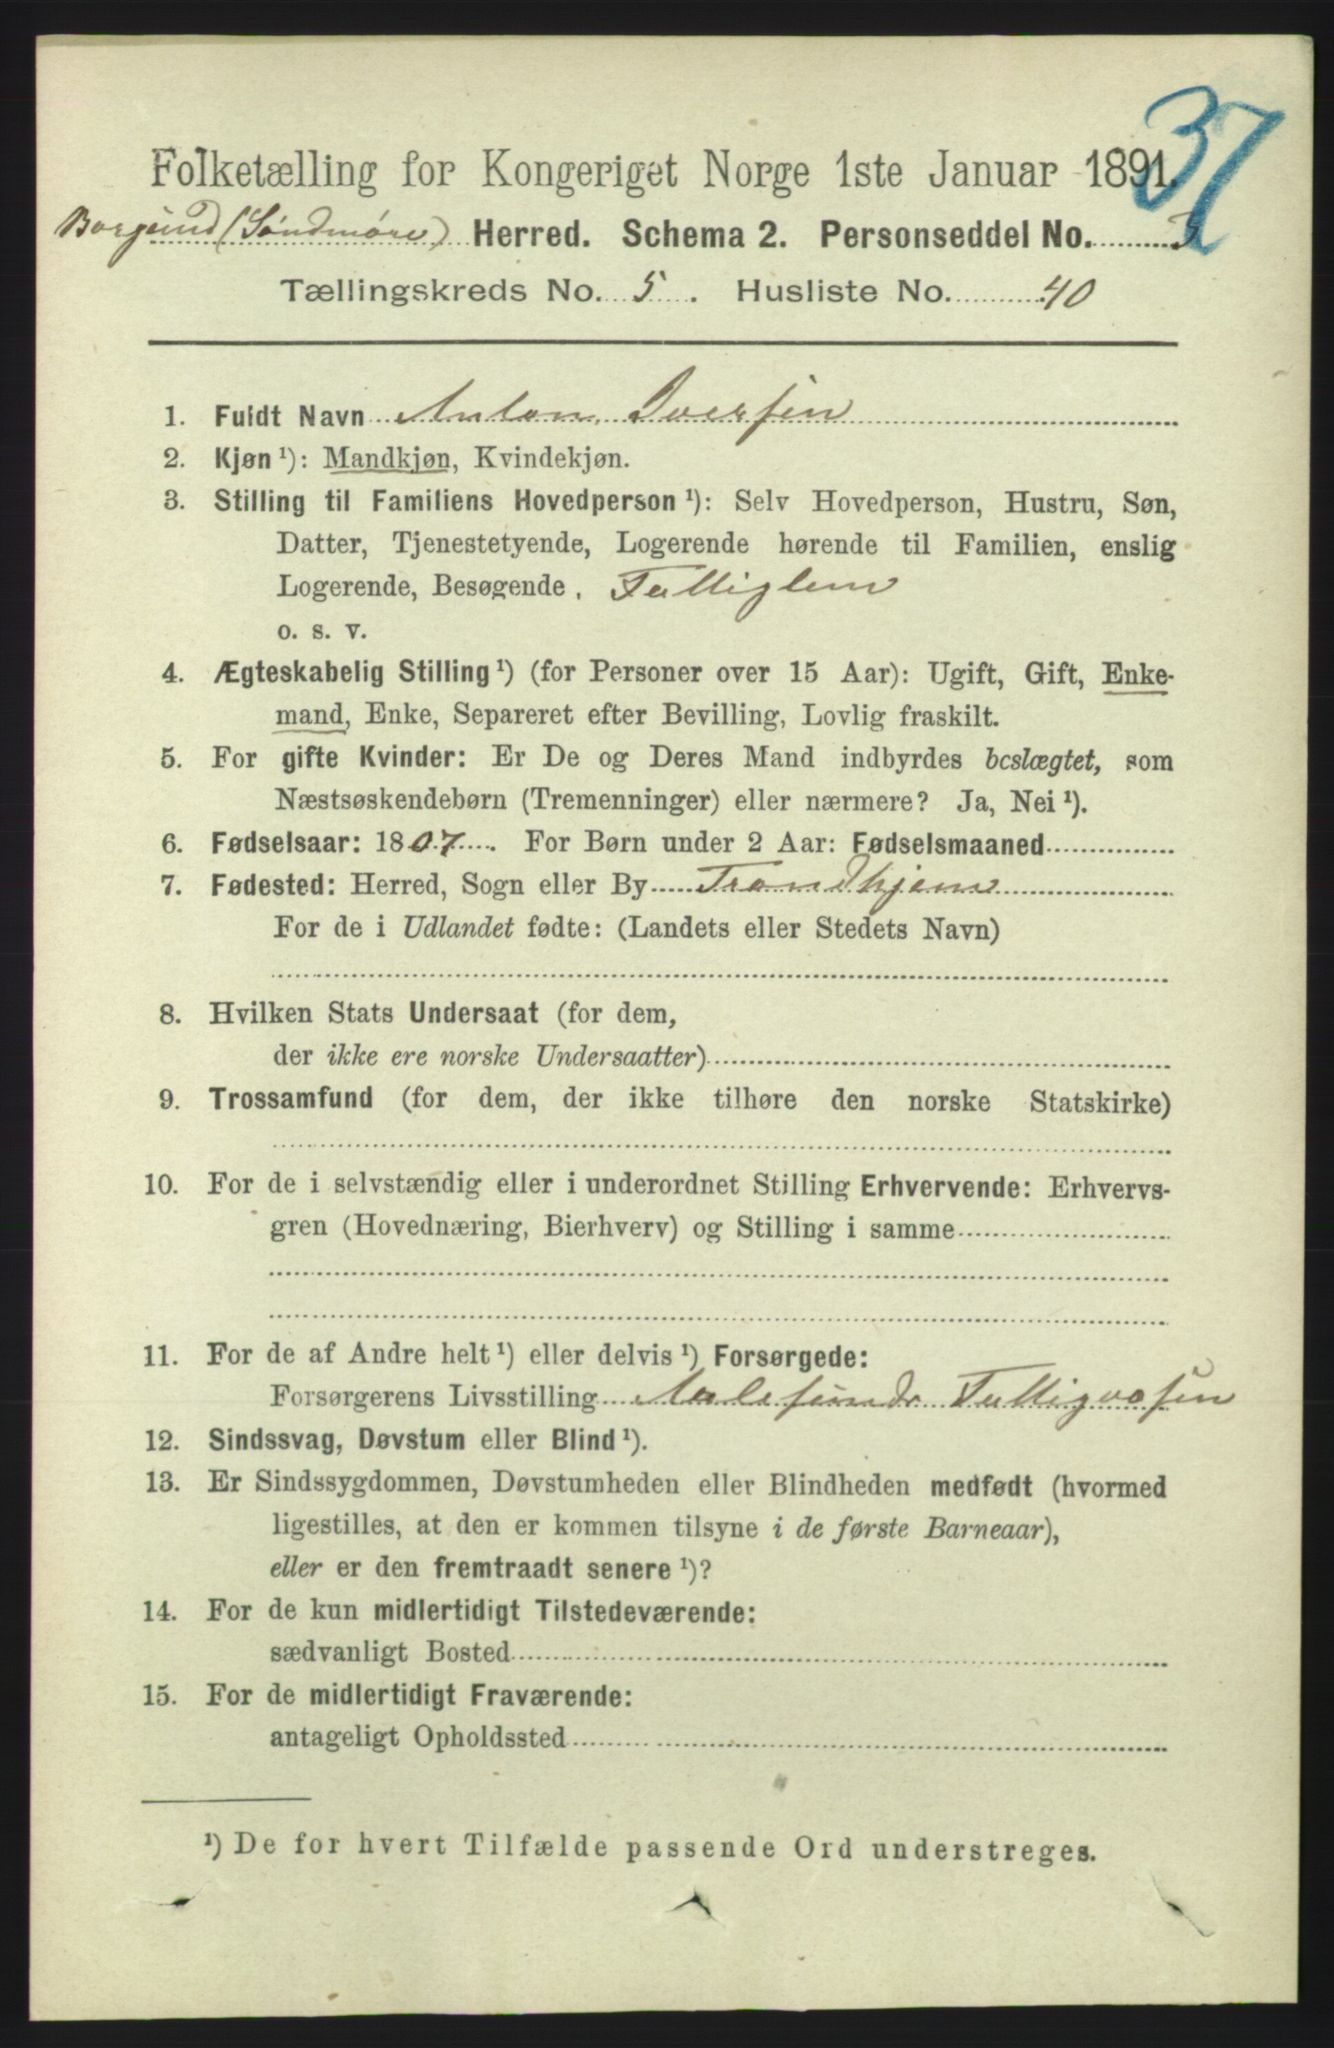 37
Folketælling for Kongeriget Norge 1ste Januar 1891.
Borgund (Søndmøre) Herred. Schema 2. Personseddel No. 3
Tællingskreds No. 5. Husliste No. 40
1. Fuldt Navn Anton Iversen
2. Kjøn ¹): Mandkjøn, Kvindekjøn.
3. Stilling til Familiens Hovedperson ¹): Selv Hovedperson, Hustru, Søn,
Datter, Tjenestetyende, Logerende hørende til Familien, enslig
Logerende, Besøgende, Fattiglem
o. s. v.
4. Ægteskabelig Stilling ¹) (for Personer over 15 Aar): Ugift, Gift, Enke-
mand, Enke, Separeret efter Bevilling, Lovlig fraskilt.
5. For gifte Kvinder: Er De og Deres Mand indbyrdes beslægtet, som
Næstsøskendebørn (Tremenninger) eller nærmere? Ja, Nei ¹).
6. Fødselsaar: 1807. For Børn under 2 Aar: Fødselsmaaned
7. Fødested: Herred, Sogn eller By Trondhjem
For de i Udlandet fødte: (Landets eller Stedets Navn)
8. Hvilken Stats Undersaat (for dem,
der ikke ere norske Undersaatter)
9. Trossamfund (for dem, der ikke tilhøre den norske Statskirke)
10. For de i selvstændig eller i underordnet Stilling Erhvervende: Erhvervs-
gren (Hovednæring, Bierhverv) og Stilling i samme
11. For de af Andre helt ¹) eller delvis ¹) Forsørgede:
Forsørgerens Livsstilling Aalesunds Fattigvæsen
12. Sindssvag, Døvstum eller Blind ¹).
13. Er Sindssygdommen, Døvstumheden eller Blindheden medfødt (hvormed
ligestilles, at den er kommen tilsyne i de første Barneaar),
eller er den fremtraadt senere ¹)?
14. For de kun midlertidigt Tilstedeværende:
sædvanligt Bosted
15. For de midlertidigt Fraværende:
antageligt Opholdssted
¹) De for hvert Tilfælde passende Ord understreges.